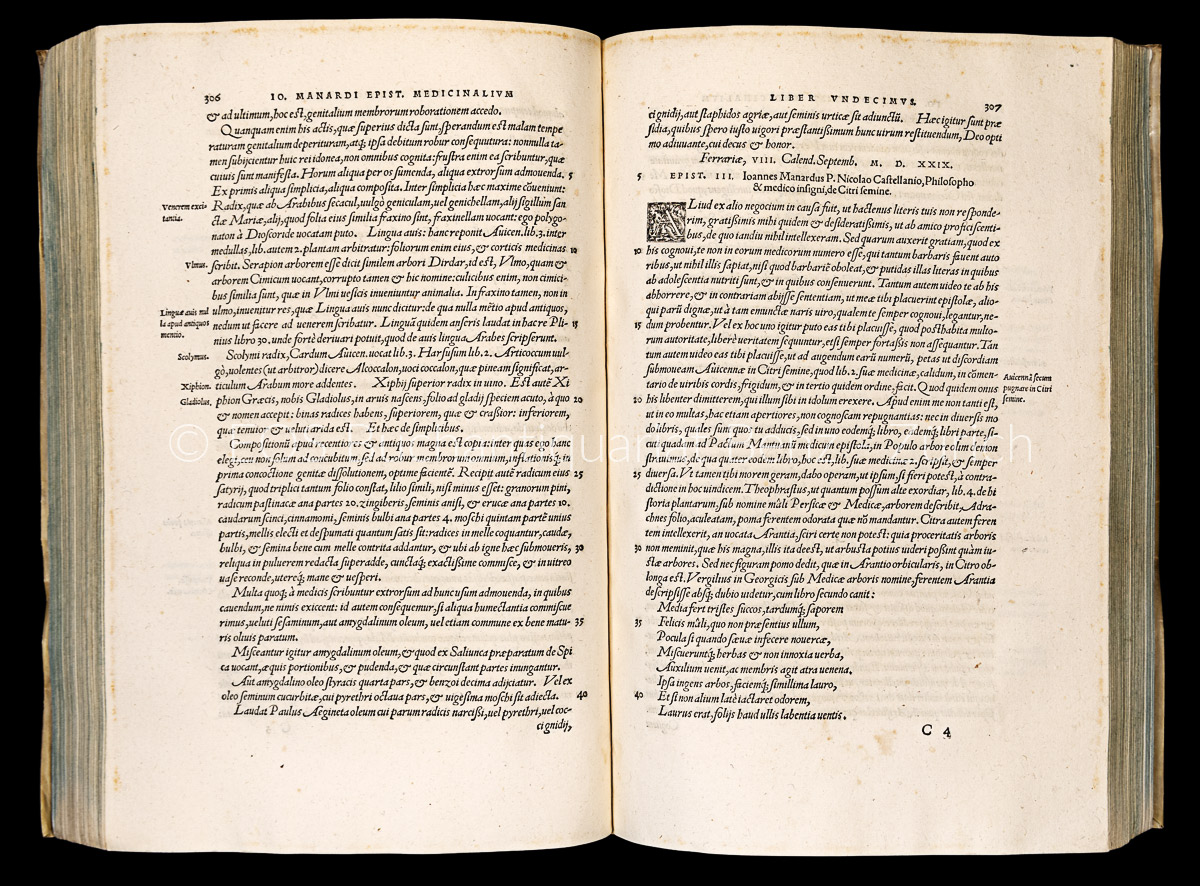 306 IO. MANARDI EPIST. MEDICINALIVM
& ad ultimum, hoc est, genitalium membrorum roborationem accedo.
Quanquam enim his actis, quæ superius dicta sunt, sperandum est malam tempe
raturam genitalium deperituram, atq; ipsa debitum robur consequutura: nonnulla ta-
men subijcientur huic rei idonea, non omnibus cognita: frustra enim ea scribuntur, quæ
cuiuis sunt manifesta. Horum aliqua per os sumenda, aliqua extrorsum admouenda. 5
Ex primis aliqua simplicia, aliqua composita. Inter simplicia hæc maxime cõueniunt:
Venerem exci-
tantia.
Radix, quæ ab Arabibus secacul, uulgò geniculam, uel genichellam, alij sigillum san
ctæ Mariæ, alij, quod folia eius similia fraxino sint, fraxinellam uocant: ego polygo-
naton à Dioscoride uocatam puto. Lingua auis: hanc reponit Auicen. lib. 3. inter
medullas, lib. autem 2. plantam arbitratur: foliorum enim eius, & corticis medicinas 10
Vlmus.
scribit. Serapion arborem esse dicit similem arbori Dirdar, id est, Vlmo, quam &
arborem Cimicum uocant, corrupto tamen & hic nomine: culicibus enim, non cimici-
bus similia sunt, quæ in Vlmi uesicis inueniuntur animalia. In fraxino tamen, non in
Linguæ auis nul
la apud antiquos
mentio.
ulmo, inuenitur res, quæ Lingua auis nunc dicitur: de qua nulla mẽtio apud antiquos,
nedum ut facere ad uenerem scribatur. Linguã quidem anseris laudat in hac re Pli- 15
nius libro 30. unde fortè deriuari potuit, quod de auis lingua Arabes scripserunt.
Scolymus.
Scolymi radix, Cardum Auicen. uocat lib. 3. Harsusum lib. 2. Articoccum uul-
gò, uolentes (ut arbitror) dicere Alcoccalon, uoci coccalon, quæ pineam significat, ar-
Xiphion.
ticulum Arabum more addentes. Xiphij superior radix in uino. Est autẽ Xi
Gladiolus.
phion Græcis, nobis Gladiolus, in aruis nascens, folio ad gladij speciem acuto, à quo 20
& nomen accepit: binas radices habens, superiorem, quæ & craßior: inferiorem,
quæ tenuior & ueluti arida est. Et hæc de simplicibus.
Compositionũ apud recentiores & antiquos magna est copia: inter quas ego hanc
elegi, ceu non solum ad concubitum, sed ad robur membrorum omnium, inflationisq; in
prima concoctione genitæ dissolutionem, optime facientẽ. Recipit autẽ radicum eius 25
satyrij, quod triplici tantum folio constat, lilio simili, nisi minus esset: granorum pini,
radicum pastinacæ ana partes 20. zingiberis, seminis anisi, & erucæ ana partes 10.
caudarum scinci, cinnamomi, seminis bulbi ana partes 4. moschi quintam parte unius
partis, mellis electi et despumati quantum satis sit: radices in melle coquantur, caudæ,
bulbi, & semina bene cum melle contrita addantur, & ubi ab igne hæc submoueris, 30
reliqua in puluerem redacta superadde, cunctaq; exactißime commisce, & in uitreo
uase reconde, utereq; mane & uesperi.
Multa quoq; à medicis scribuntur extrorsum ad hunc usum admouenda, in quibus
cauendum, ne nimis exiccent: id autem consequemur, si aliqua humectantia commiscue
rimus, ueluti sesaminum, aut amygdalinum oleum, uel etiam commune ex bene matu- 35
ris oliuis paratum.
Misceantur igitur amygdalinum oleum, & quod ex Saliunca præparatum de Spi
ca uocant, æquis portionibus, & pudenda, & quæ circunstant partes inungantur.
Aut amygdalino oleo styracis quarta pars, & benzoi decima adijciatur. Vel ex
oleo seminum cucurbitæ, cui pyrethri octaua pars, & uigesima moschi sit adiecta. 40
Laudat Paulus Aegineta oleum cui parum radicis narcißi, uel pyrethri, uel coc-
cignidij,
LIBER VNDECIMVS. 307
cignidij, aut staphidos agriæ, aut seminis urticæ sit adiunctũ. Hæc igitur sunt præ
sidia, quibus spero iusto uigori præstantißimum hunc uirum restituendum, Deo opti
mo adiuuante, cui decus & honor.
Ferrariæ, VIII. Calend. Septemb. M. D. XXIX.
5 EPIST. III. Ioannes Manardus P. Nicolao Castellanio, Philosopho
& medico insigni, de Citri semine.
ALiud ex alio negocium in causa fuit, ut hactenus literis tuis non responde-
rim, gratißimis mihi quidem & desideratißimis, ut ab amico proficiscenti-
bus, de quo iandiu nihil intellexeram. Sed quarum auxerit gratiam, quod ex
10 his cognoui, te non in eorum medicorum numero esse, qui tantum barbaris fauent auto
ribus, ut nihil illis sapiat, nisi quod barbariẽ oboleat, & putidas illas literas in quibus
ab adolescentia nutriti sunt, & in quibus consenuerunt. Tantum autem uideo te ab his
abhorrere, & in contrariam abijsse sententiam, ut meæ tibi placuerint epistolæ, alio-
qui parũ dignæ, ut à tam emunctæ naris uiro, qualem te semper cognoui, legantur, ne-
15 dum probentur. Vel ex hoc uno igitur puto eas tibi placuisse, quod posthabita multo-
rum autoritate, liberè ueritatem sequuntur, etsi semper fortaßis non assequantur. Tan
tum autem uideo eas tibi placuisse, ut ad augendum earũ numerũ, petas ut discordiam
submoueam Auicennæ in Citri semine, quod lib. 2. suæ medicinæ, calidum, in comen-
Auicennã secum
pugnare in Citri
semine.
tario de uiribus cordis, frigidum, & in tertio quidem ordine, facit. Quod quidem onus
20 his libenter dimitterem, qui illum sibi in idolum erexere. Apud enim me non tanti est,
ut in eo multas, hac etiam apertiores, non cognoscam repugnantias: nec in diuersis mo
do libris, quales sunt quos tu adducis, sed in uno eodemq; libro, eodemq; libri parte, si-
cuti quadam ad Pactum Mantuanũ medicum epistola, in Populo arbore olim demon
strauimus, de qua quater eodem libro, hoc est, lib. suæ medicinæ 2. scripsit, & semper
25 diuersa. Vt tamen tibi morem geram, dabo operam, ut ipsum, si fieri potest, à contra-
dictione in hoc uindicem. Theophrastus, ut quantum possum alte exordiar, lib. 4. de hi
storia plantarum, sub nomine mali Persicæ & Medicæ, arborem describit, Adra-
chnes folio, aculeatam, poma ferentem odorata quæ nõ mandantur. Citra autem feren
tem intellexerit, an uocata Arantia, sciri certe non potest: quia proceritatis arboris
30 non meminit, quæ his magna, illis ita deest, ut arbusta potius uideri poßint quàm iu-
stæ arbores. Sed nec figuram pomo dedit, quæ in Arantio orbicularis, in Citro ob-
longa est. Vergilius in Georgicis sub Medicæ arboris nomine, ferentem Arantia
descripsisse absq; dubio uidetur, cum libro secundo canit:
Media fert tristes succos, tardumq; saporem
35 Felicis mali, quo non præsentius ullum,
Pocula si quando sæuæ infecere nouercæ,
Miscueruntq; herbas & non innoxia uerba,
Auxilium uenit, ac membris agit atra uenena.
Ipsa ingens arbos, faciemq; simillima lauro,
40 Et si non alium latè iactaret odorem,
Laurus erat, folijs haud ullis labentia uentis.
C 4